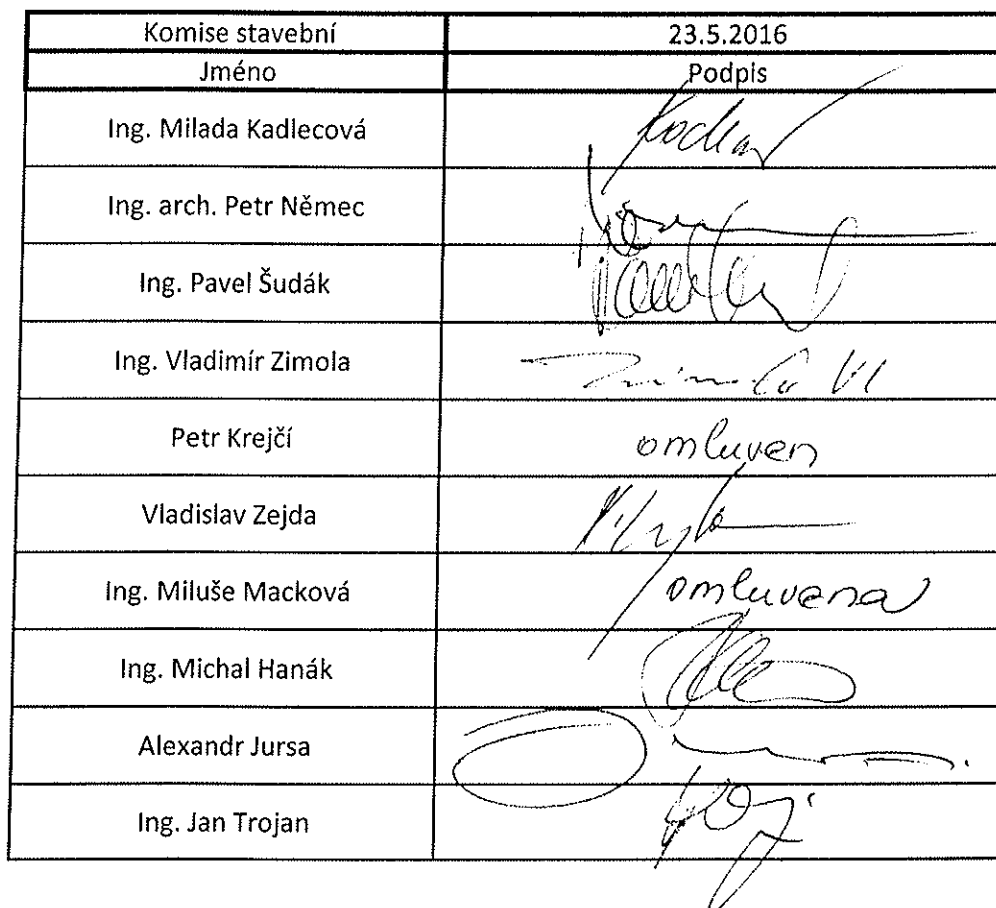 Komise stavební 23.5.2016
Jméno Podpis
Ing. Milada Kadlecová
Ing. arch. Petr Němec
Ing. Pavel Šudák
Ing. Vladimír Zimola
Petr Krejčí omluven
Vladislav Zejda
Ing. Miluše Macková omluvena
Ing. Michal Hanák
Alexandr Jursa
Ing. Jan Trojan